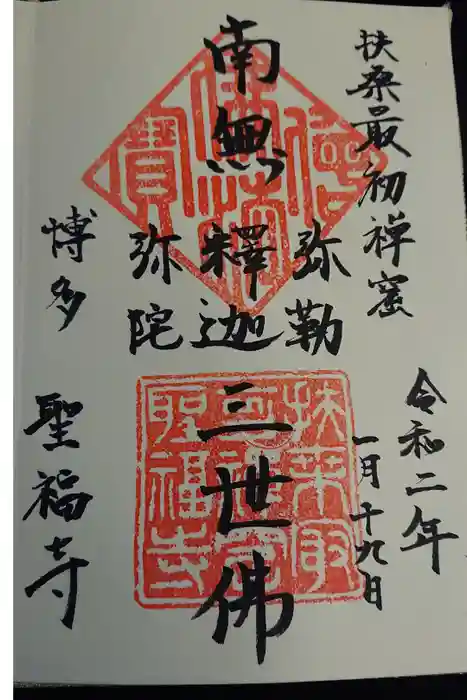 扶桑最初禅窟
令和二年
一月十九日
南無
弥勒
釋迦
弥陀
三世佛
博多
聖福寺
佛法僧寳
扶桑最
初禅窟
聖福寺